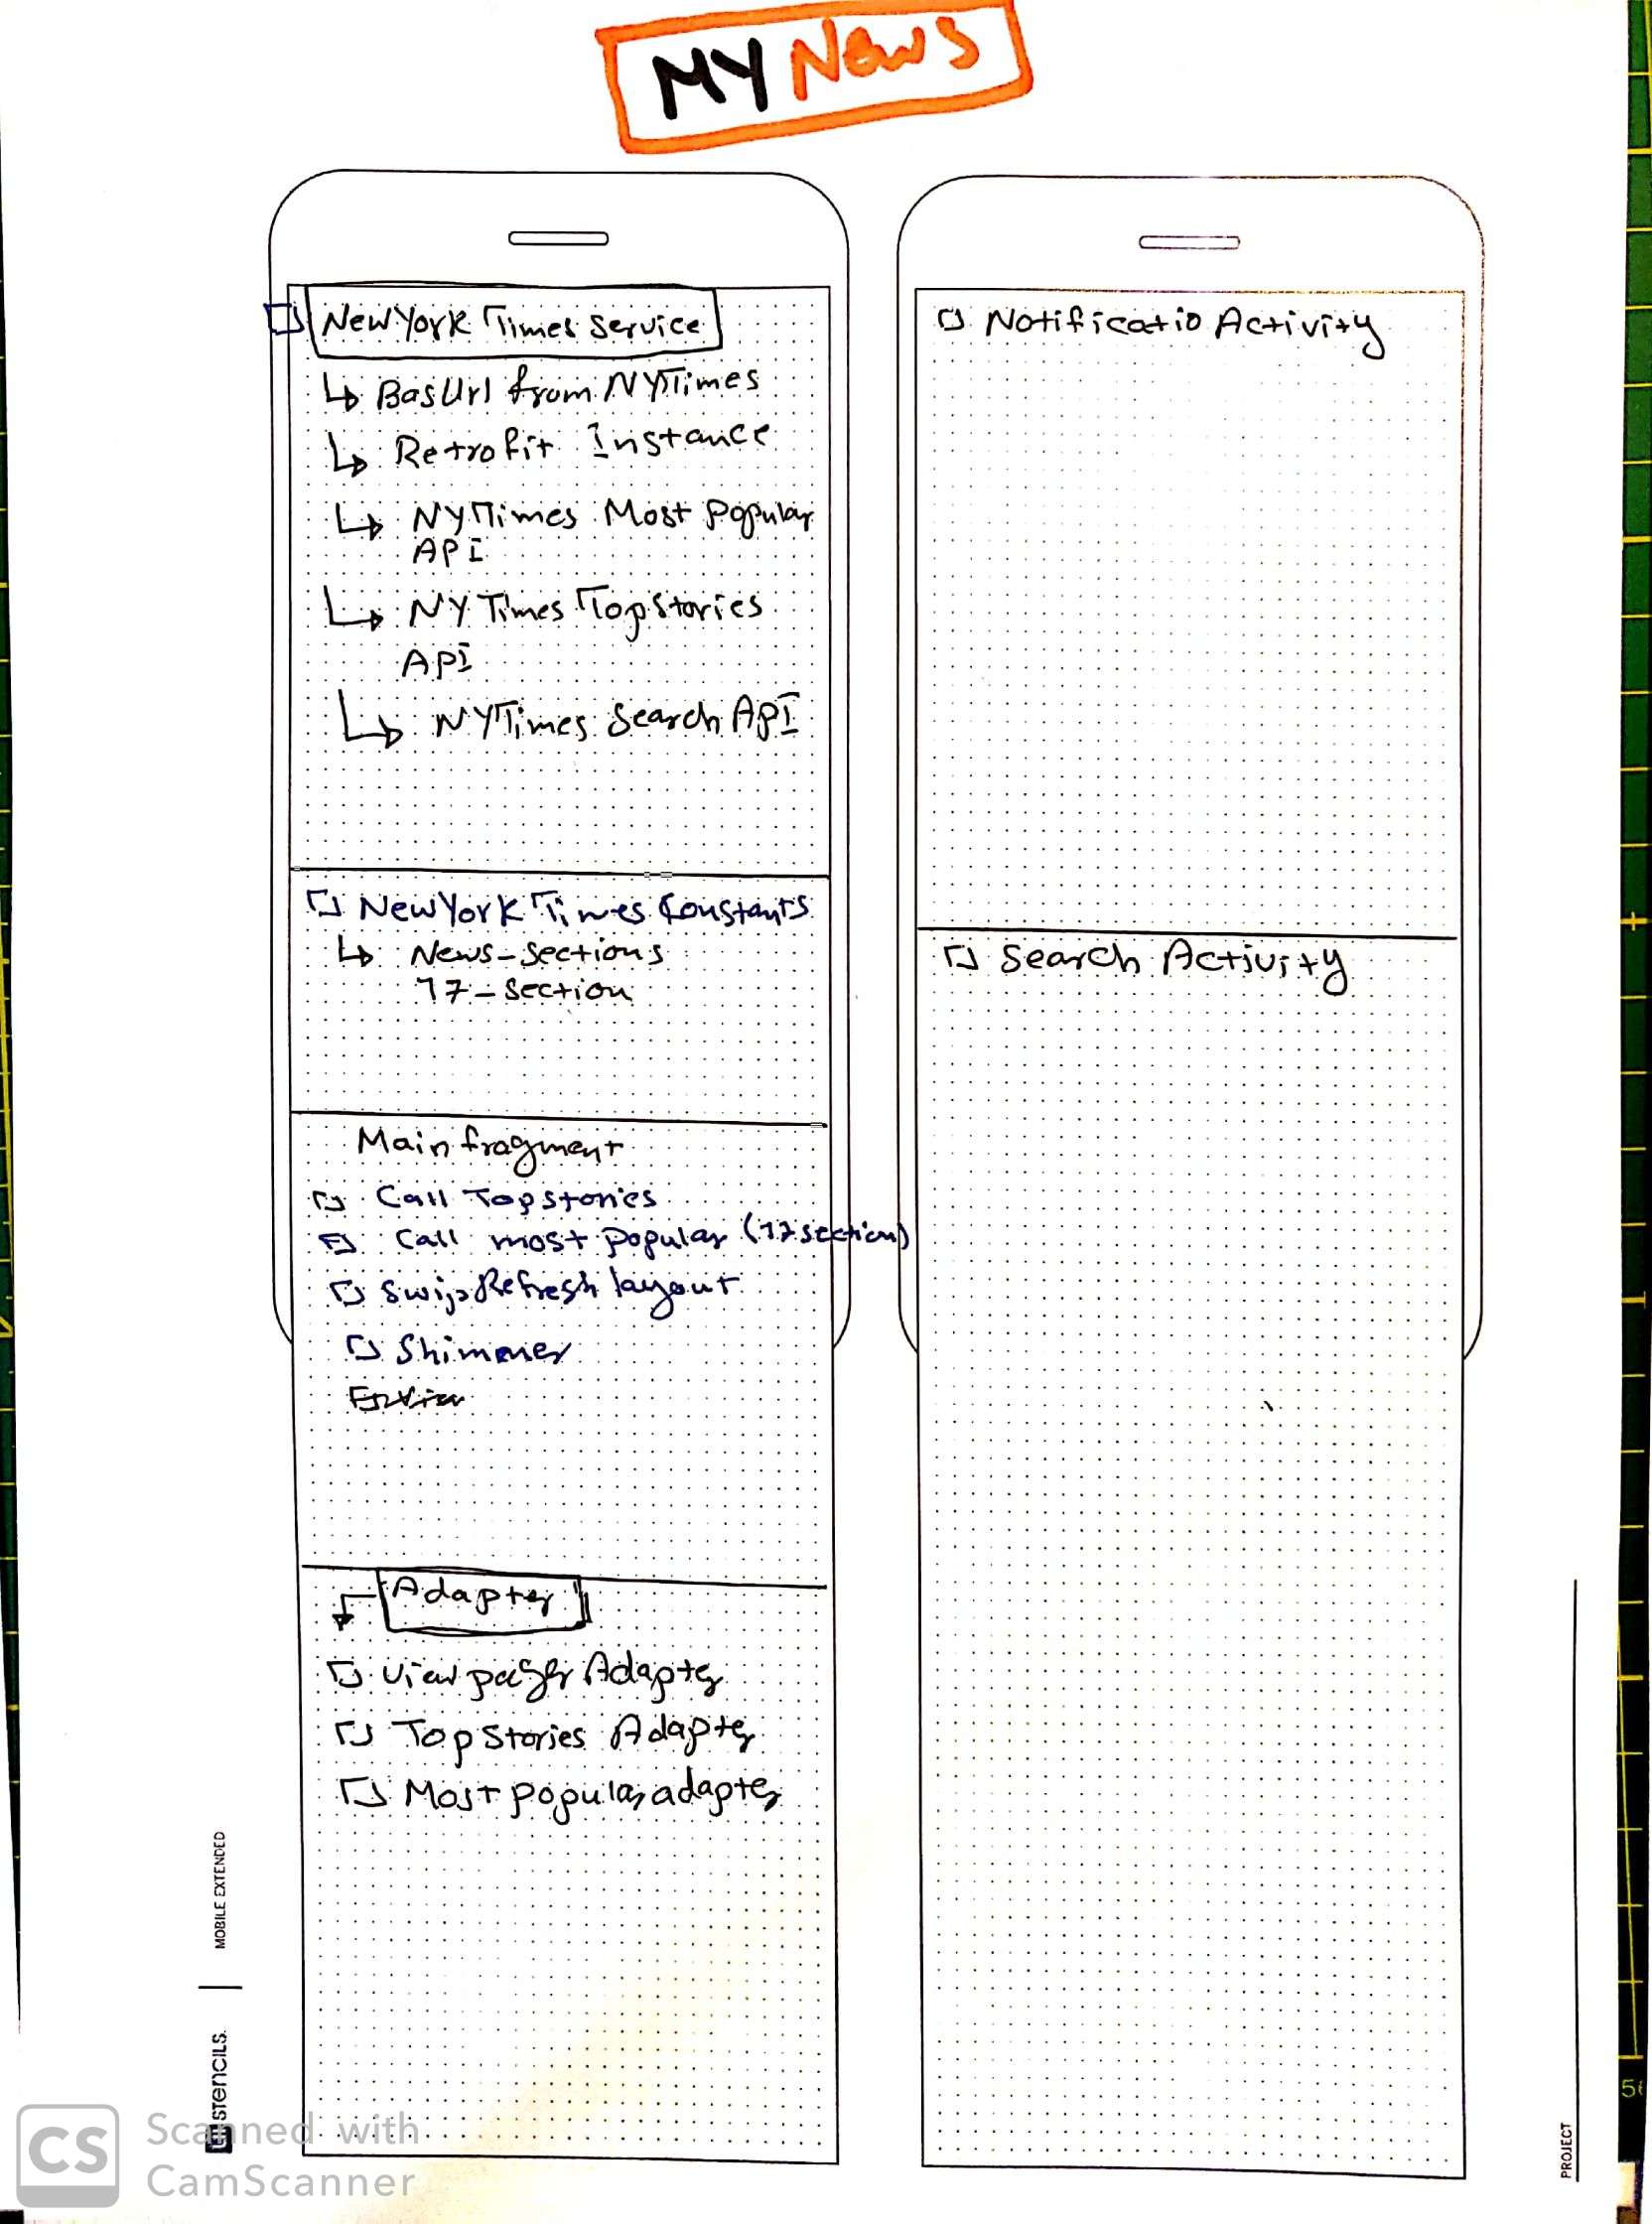 MY News
New York Times Service
BasUrl from NYTimes
Retrofit Instance
NYTimes Most Popular
API
NY Times Top Stories
API
NYTimes Search API
New York Times Constants
News-sections
17-section
Main fragment
Call Top stories
Call most popular (17 section)
Swip Refresh layout
Shimmer
Adapter
View pager Adapter
Top Stories Adapter
Most popular adapter
Notificatio Activity
Search Activity
MOBILE EXTENDED
UI STENCILS.
PROJECT
CS
Scanned with
CamScanner